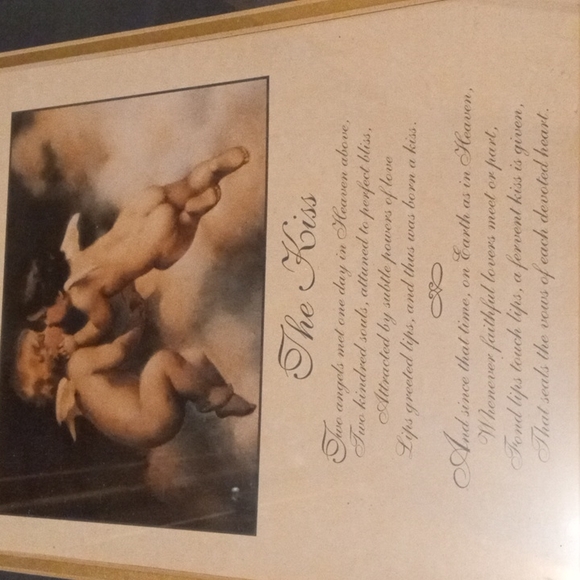 The Kiss
Two angels met one day in Heaven above,
Two kindred souls, attuned to perfect bliss,
Attracted by subtle powers of love
Lips greeted lips, and thus was born a kiss.
And since that time, on Earth as in Heaven,
Whenever faithful lovers meet or part,
Fond lips touch lips, a fervent kiss is given,
That seals the vows of each devoted heart.